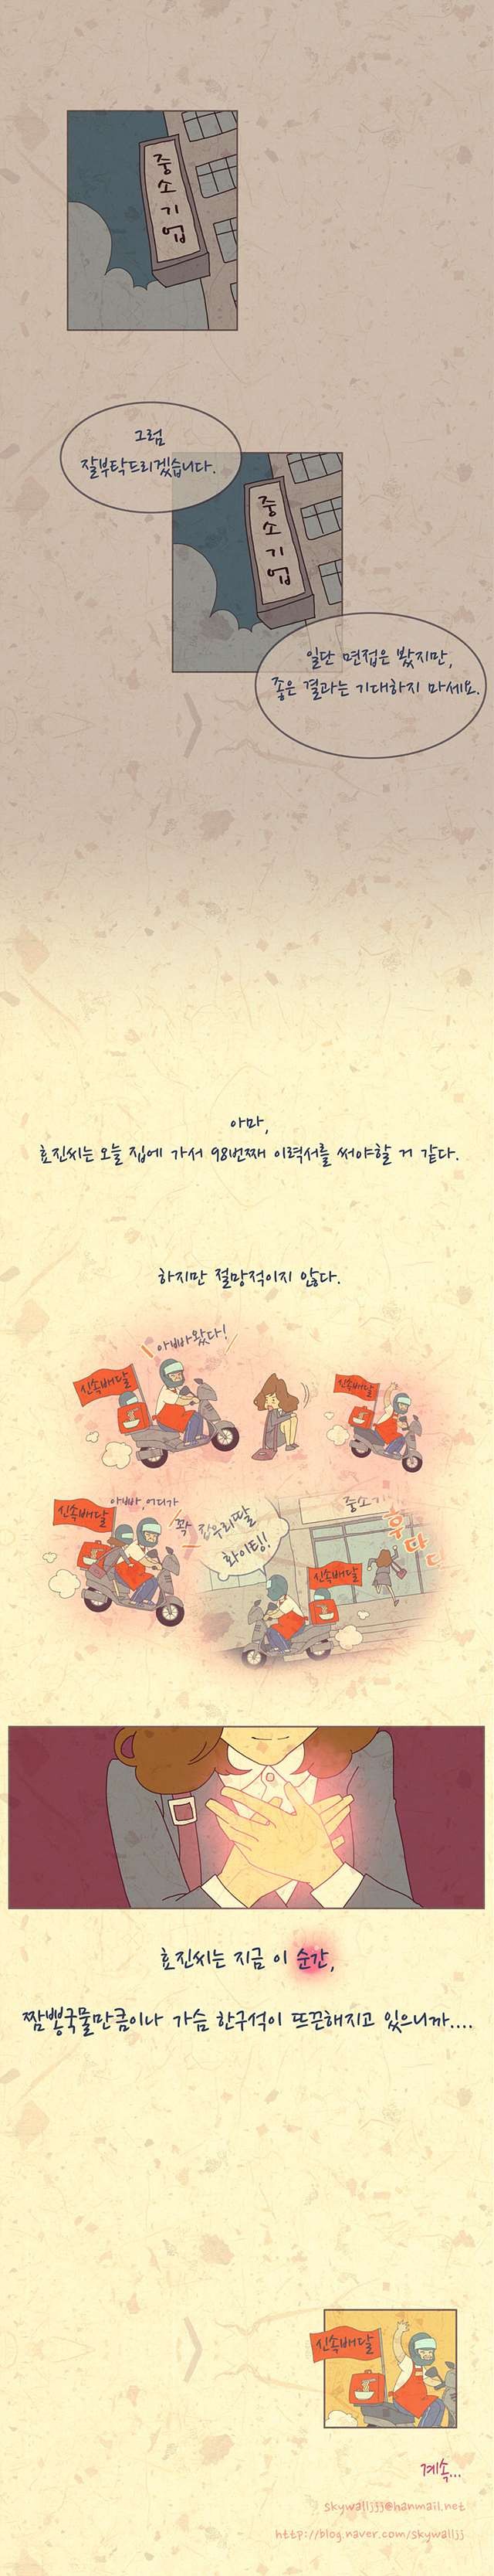 중소기업
그럼
잘부탁드리겠습니다.
중소기업
일단 면접은 봤지만,
좋은 결과는 기대하지 마세요.
아마,
효진씨는 오늘 집에 가서 98번째 이력서를 써야할 거 같다.
하지만 절망적이지 않다.
아빠왔다!
신속배달
신속배달
아빠,어디가
신속배달
꽉 잡우리딸
화이팅!
중소기
후다다
신속배달
효진씨는 지금 이 순간,
짬뽕국물만큼이나 가슴 한구석이 뜨끈해지고 있으니까....
신속배달
계속...
skywalljjj@hanmail.net
http://blog.naver.com/skywalljj